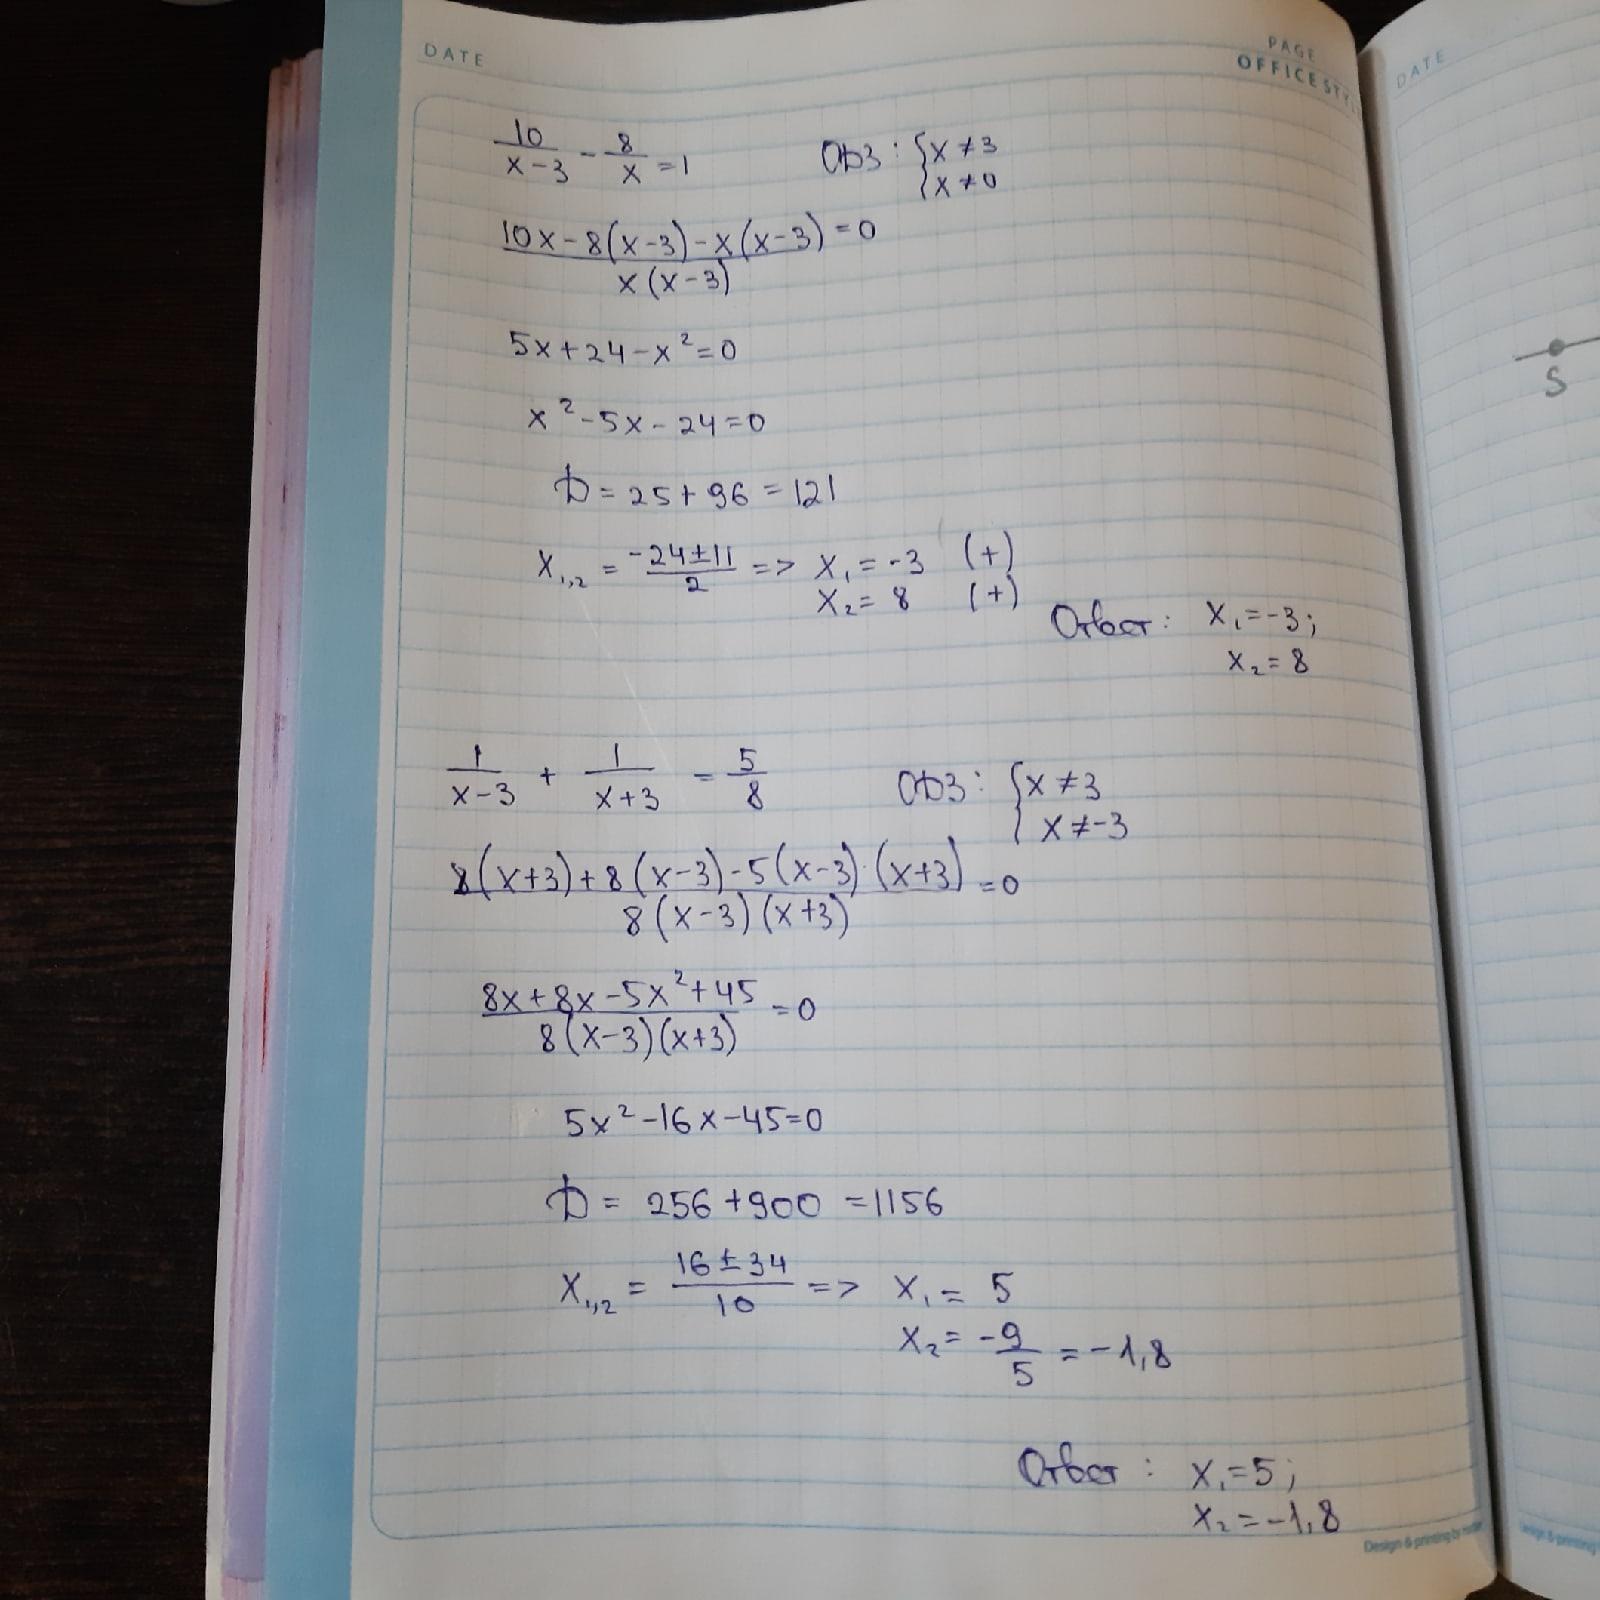 DATE
PAGE
OFFICE STY
DATE
10/(x-3) - 8/x = 1 ОДЗ: {x ≠ 3
x ≠ 0
(10x-8(x-3)-x(x-3))/(x(x-3)) = 0
5x+24-x²=0
x²-5x-24=0
D=25+96=121
x₁,₂ = (-24±11)/2 => x₁=-3 (+)
x₂=8 (+)
Ответ: x₁=-3;
x₂=8
1/(x-3) + 1/(x+3) = 5/8 ОДЗ: {x ≠ 3
x ≠ -3
(8(x+3)+8(x-3)-5(x-3)·(x+3))/(8(x-3)(x+3)) = 0
(8x+8x-5x²+45)/(8(x-3)(x+3)) = 0
5x²-16x-45=0
D = 256+900=1156
x₁,₂ = (16±34)/10 => x₁ = 5
x₂ = -9/5 = -1,8
Ответ: x₁=5;
x₂=-1,8
Design & printing by
S